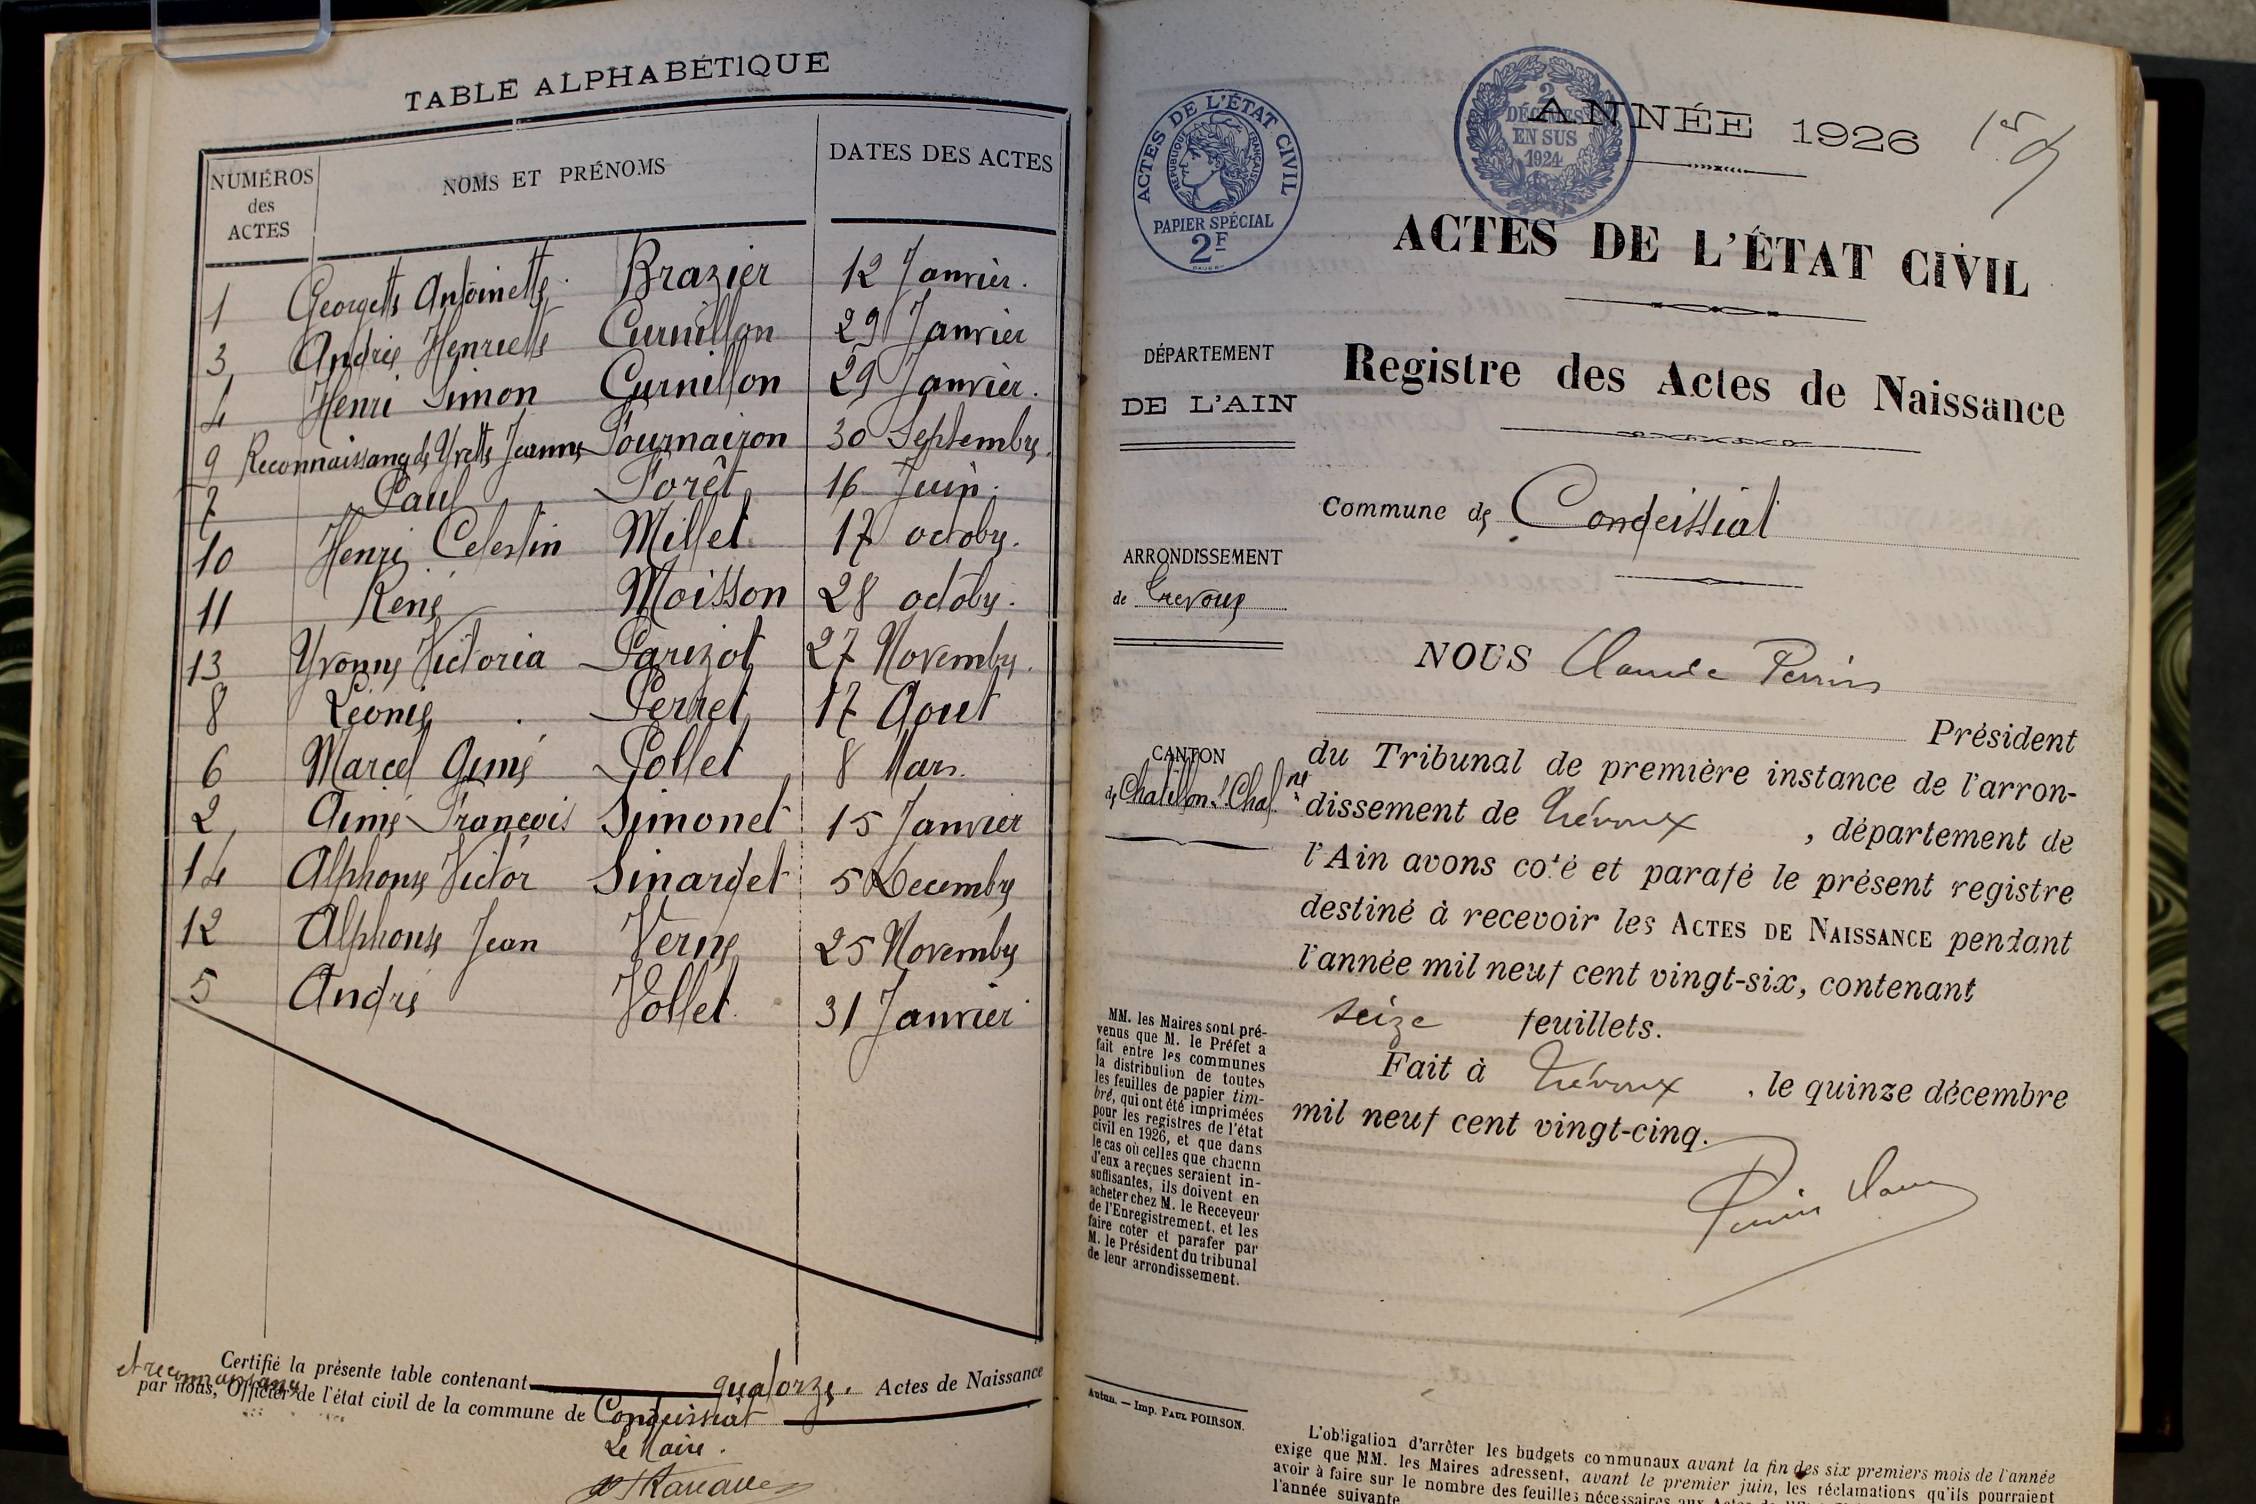 TABLE ALPHABÉTIQUE
NUMÉROS des ACTES NOMS ET PRÉNOMS DATES DES ACTES
1 Georgette Antoinette Brazier 12 Janvier.
3 Andrée Henriette Curnillon 29 Janvier
4 Henri Simon Curnillon 29 Janvier.
9 Reconnaissance de Yvette Jeanne Fournaizon 30 Septembre.
7 Paul Forêt 16 Juin.
10 Henri Celestin Millet 17 octobre.
11 René Moisson 28 octobre.
13 Yvonne Victoria Parizot 27 Novembre.
8 Léonie Perret 17 Aout
6 Marcel Aimé Pollet 8 Mars.
2 Aimé François Simonet 15 Janvier
14 Alphonse Victor Sinardet 5 Decembre
12 Alphonse Jean Verne 25 Novembre
5 André Vollet 31 Janvier
Certifié la présente table contenant quatorze. Actes de Naissance
et reconnaissance
par nous, Officier de l'état civil de la commune de Condeissiat
Le Maire.
ACTES DE L'ÉTAT CIVIL
RÉPUBLIQUE FRANÇAISE
PAPIER SPÉCIAL
2F
2
DÉCIMES
EN SUS
1924
ANNÉE 1926
ACTES DE L'ÉTAT CIVIL
Registre des Actes de Naissance
Commune de Condeissiat
DÉPARTEMENT
DE L'AIN
ARRONDISSEMENT
de Trevoux
CANTON
de Chatillon s/ Chalne
NOUS Claude Perrin
Président
du Tribunal de première instance de l'arron-
dissement de Trévoux, département de
l'Ain avons coté et parafé le présent registre
destiné à recevoir les ACTES DE NAISSANCE pendant
l'année mil neuf cent vingt-six, contenant
seize feuillets.
Fait à Trévoux, le quinze décembre
mil neuf cent vingt-cinq.
Perrin Claude
MM. les Maires sont pré-
venus que M. le Préfet a
fait entre les communes
la distribution de toutes
les feuilles de papier tim-
bré, qui ont été imprimées
pour les registres de l'état
civil en 1926, et que dans
le cas où celles que chacun
d'eux a reçues seraient in-
suffisantes, ils doivent en
acheter chez M. le Receveur
de l'Enregistrement, et les
faire coter et parafer par
M. le Président du tribunal
de leur arrondissement.
Autun. — Imp. PAUL POIRSON.
L'obligation d'arrêter les budgets communaux avant la fin des six premiers mois de l'année
exige que MM. les Maires adressent, avant le premier juin, les réclamations qu'ils pourraient
avoir à faire sur le nombre des feuilles nécessaires aux Actes de
l'année suivante